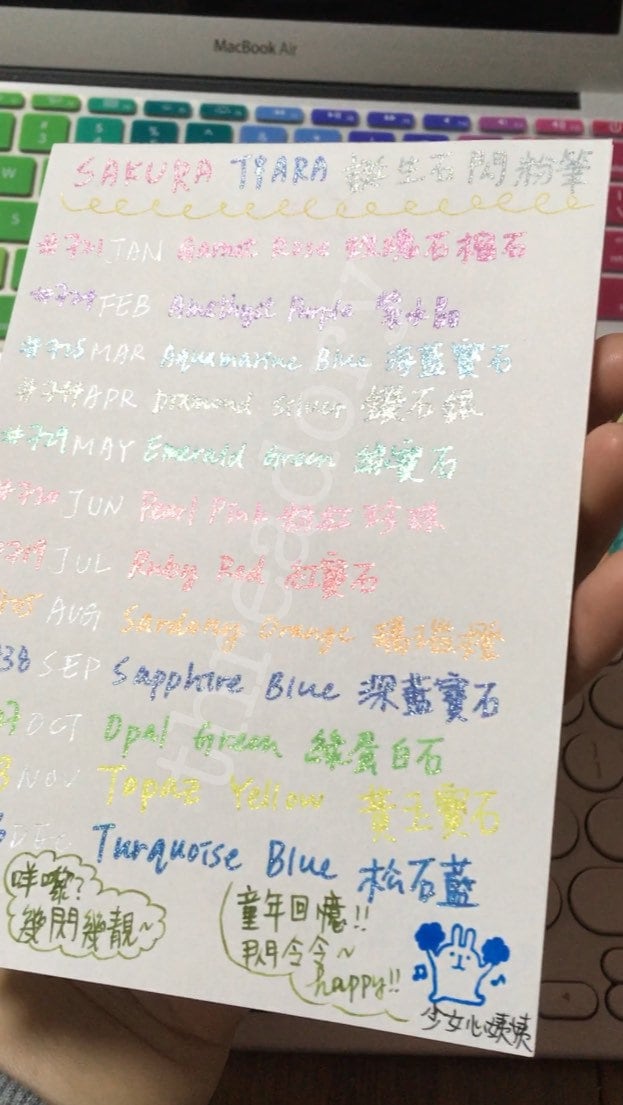 MacBook Air
SAKURA TIARA 誕生石閃粉筆
JAN Garnet Rose 玫瑰石榴石
FEB Amethyst Purple 紫水晶
#735 MAR Aquamarine Blue 海藍寶石
APR Diamond Silver 鑽石銀
#729 MAY Emerald Green 綠寶石
JUN Pearl Pink 粉紅珍珠
#719 JUL Ruby Red 紅寶石
AUG Sardonyx Orange 瑪瑙橙
38 SEP Sapphire Blue 深藍寶石
OCT Opal Green 綠蛋白石
NOV Topaz Yellow 黃玉寶石
DEC Turquoise Blue 松石藍
咩嚟?
幾閃幾靚~
童年回憶!!
閃令令~
happy!!
少女心姨姨
threadory